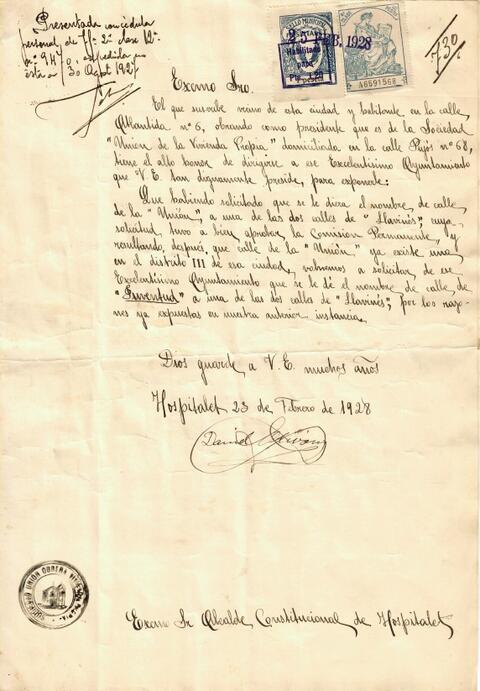 Presentada con cédula
personal de Tfª 2ª clase 12ª
expedida en
ésta a 30 Agost 1927
SELLO MUNICIPAL
25 FEB. 1928
Habilitado
para
A6591568
730
Excmo Sro.
El que suscribe vecino de esta ciudad y habitante en la calle
Atlantida nº 6, obrando como presidente que es de la Sociedad
"Union de la Vivienda Propia" domiciliada en la calle Pujós nº 68,
tiene el alto honor de dirigirse a ese Excelentisimo Ayuntamiento
que V.E. tan dignamente preside, para exponerle:
Que habiendo solicitado que se le diera el nombre, de calle
de la "Unión", a una de las dos calles de "Llavinés", cuya
solicitud, tuvo a bien aprobar la Comision Permanente, y
resultando, después, que calle de la "Unión" ya existe una
en el distrito III de esa ciudad, volvemos a solicitar, de ese
Excelentisimo Ayuntamiento que se le dé el nombre de calle de
"Juventud" a una de las dos calles de "Llavinés", por los razo-
nes ya expuestas en nuestra anterior instancia.
Dios guarde a V.E. muchos años
Hospitalet 23 de Febrero de 1928
David
UNION OBRERA
Excmo Sr Alcalde Constitucional de Hospitalet